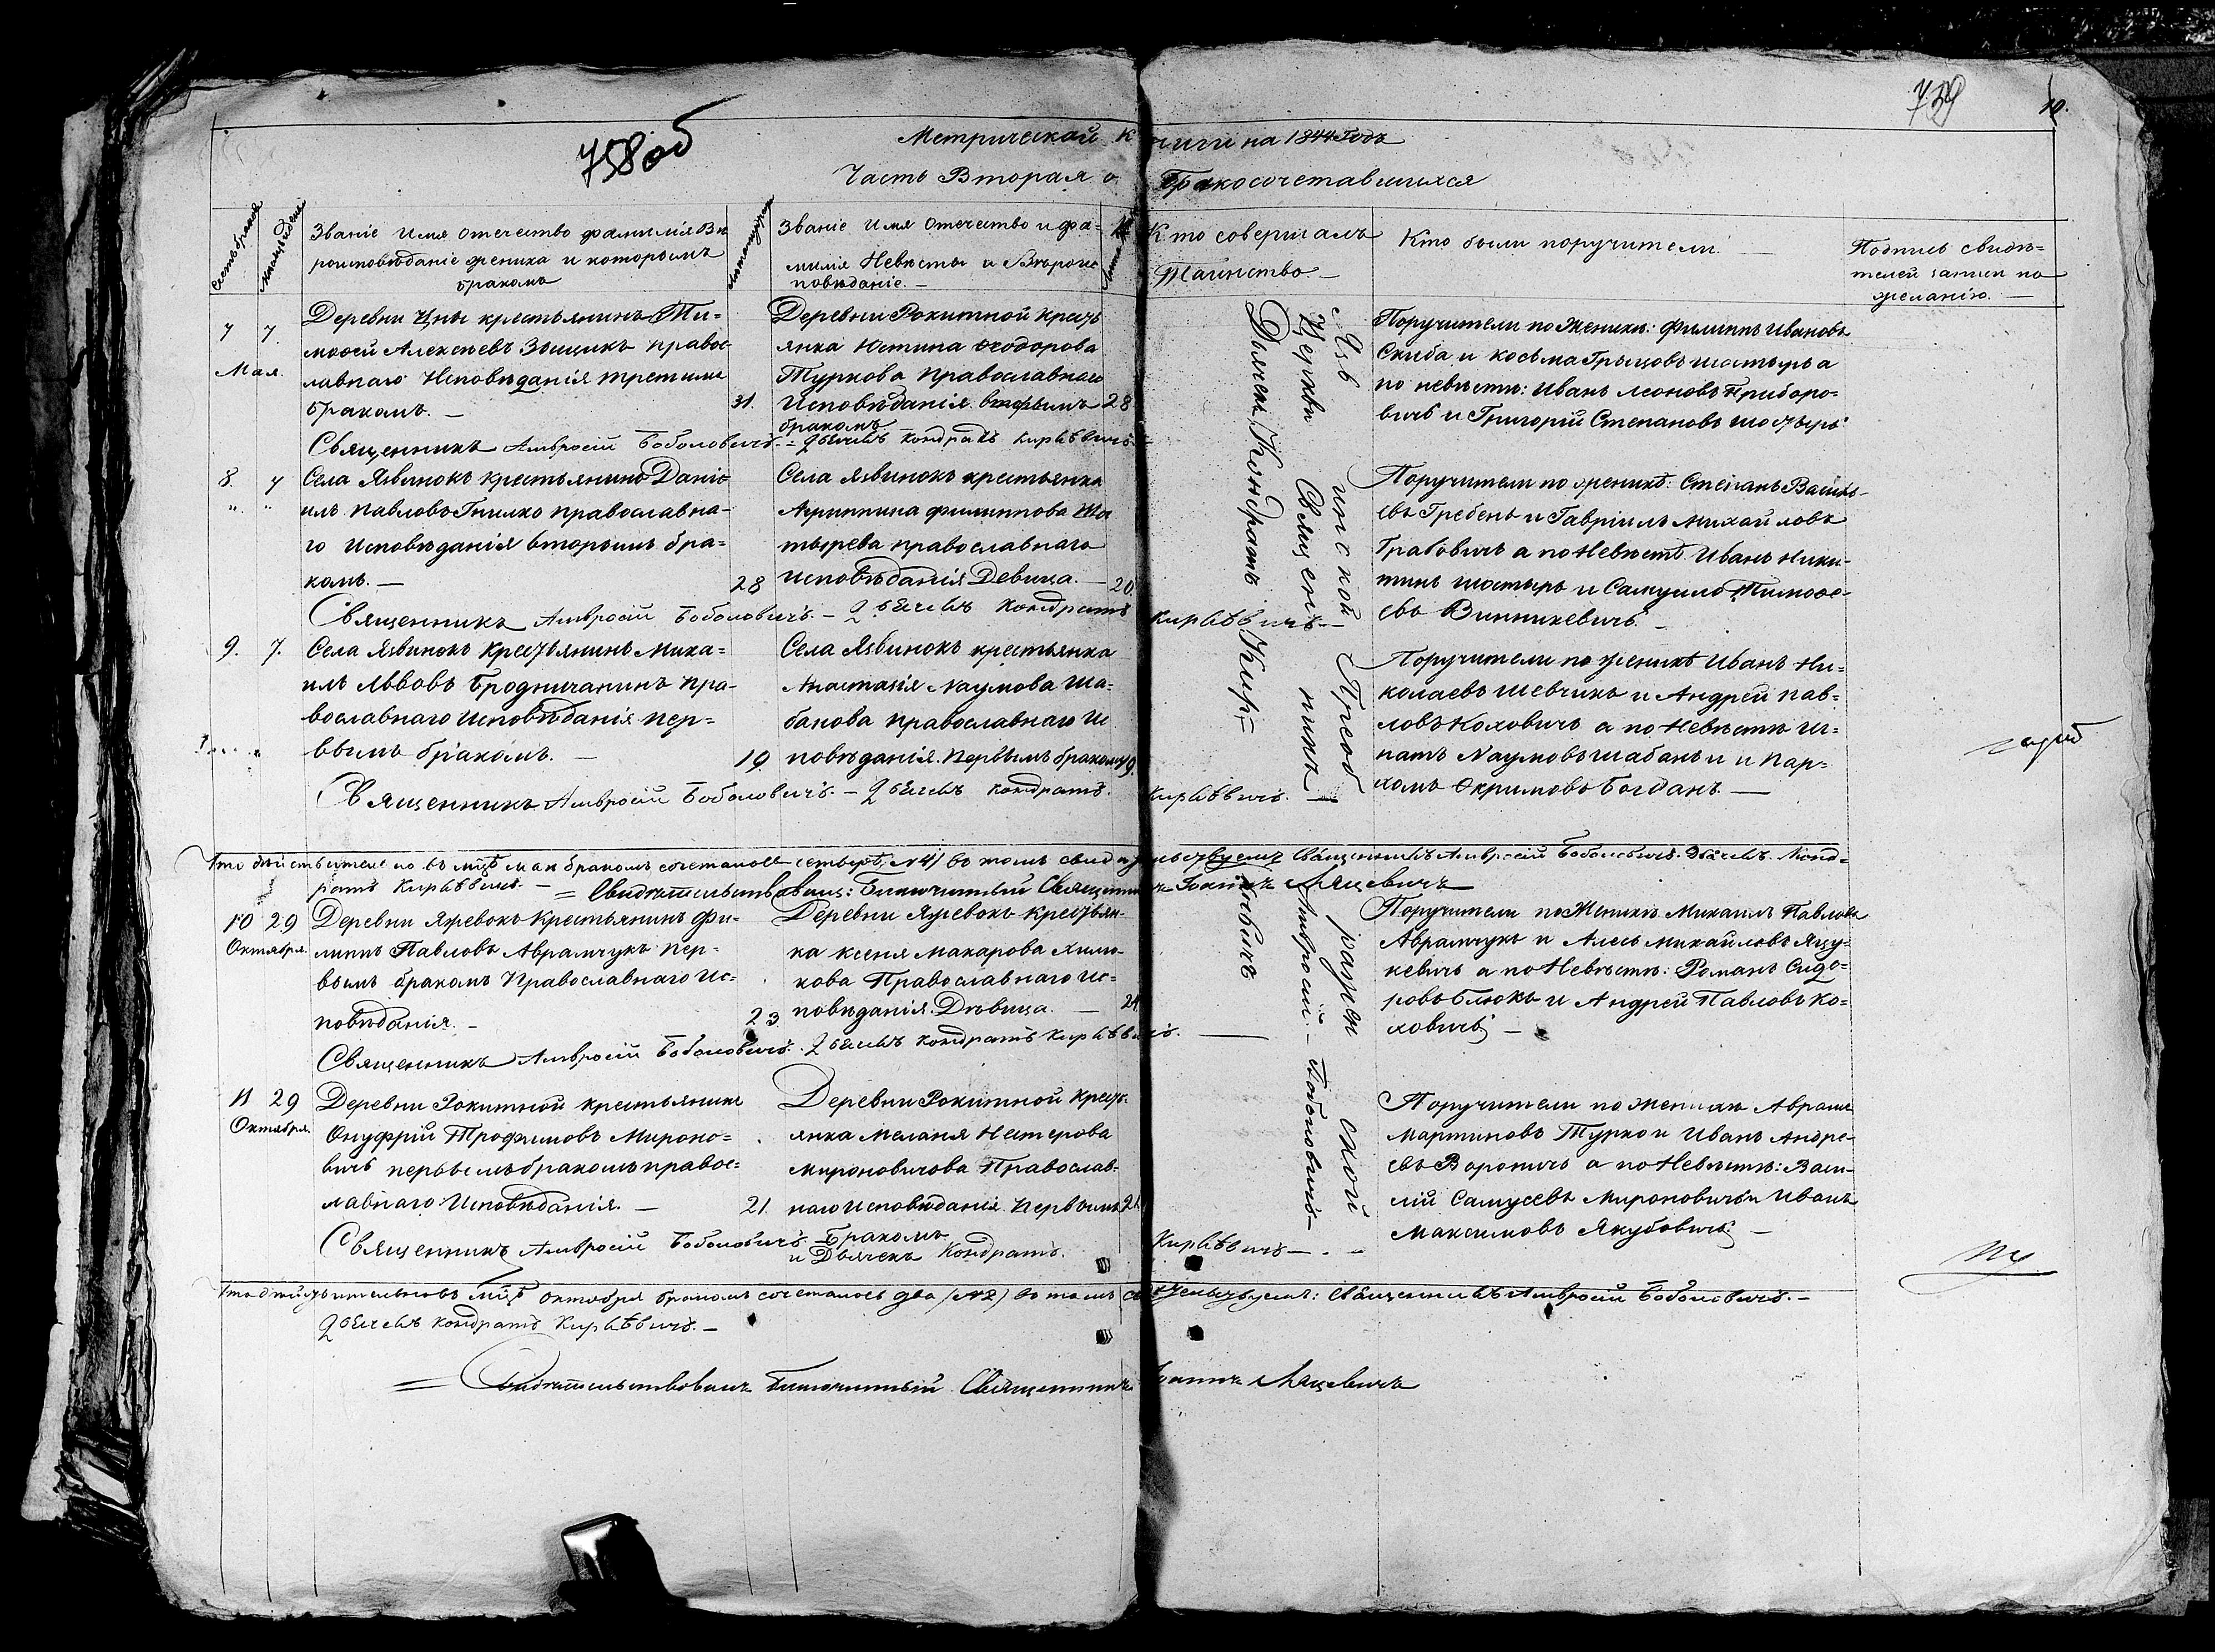 758об
739
10.
Метрической книги на 1844 Годъ
Часть Вторая о бракосочетавшихся
Званіе Имя Отечество фамилія Вѣ
роисповѣданіе жениха и которымъ
бракомъ
Званіе Имя Отечество и фа=
милія Невѣсты и Вѣроис
повѣданіе. —
Кто совершалъ
Таинство. —
Кто были поручители. —
Подпись свидѣ=
телей записи по
желанію. —
7 7.
Мая.
Деревни Цны крестьянинъ Ти=
моѳей Алексѣевъ Зыщикъ правос
лавнаго Исповѣданія третимъ
бракомъ. —
31.
Деревни Рокитной крестъ
янка Юстина Ѳеодорова
Туркова Православнаго
Исповѣданія. вторымъ
бракомъ. —
28
Поручители по Женихѣ: Филиппъ Ивановъ
Скиба и Косьма Грыцовъ шостырь а
по невѣстѣ: Иванъ Леоновъ Приборо=
вичъ и Григорій Степановъ шостырь
Священникъ Амвросій Боболовичъ. = Дьячекъ Кондратъ Кирѣевичъ
8. 7
Села Язвинокъ Крестьянинъ Даніо
илъ Павловъ Гнилко православна=
го Исповѣданія вторымъ бра=
комъ. —
28
Села Язвинокъ крестьянка
Агриппина Филиппова Шос
тырева православнаго
исповѣданія Девица. —
20.
Поручители по женихѣ: Степанъ Василь-
евъ Гребень и Гавріилъ Михайловъ
Грабовичъ а по Невѣстѣ Иванъ Ники-
тинъ шостырь и Самуилъ Тимоѳе=
евъ Винникевичъ. —
Священникъ Амвросій Боболовичъ. — Дьячекъ Кондратъ Кирѣевичъ —
9. 7.
Села Язвинокъ Крестьянинъ Миха=
илъ Львовъ Бродничанинъ пра-
вославнаго Исповѣданія пер=
вымъ бракомъ. —
19.
Села Язвинокъ крестьянка
Анастасія Наумова Ша=
банова православнаго Ис
повѣданія. Первымъ бракомъ
19.
Поручители по женихѣ Иванъ Ни=
колаевъ Шевчикъ и Андрей Пав=
ловъ Коховичъ а по Невѣстѣ Иг=
натъ Наумовъ Шабанъ и и Пар=
хомъ Охримовъ Богданъ. —
Священникъ Амвросій Боболовичъ. — Дьячекъ Кондратъ. Кирѣевичъ. —
Что дѣйствительно въ мцѣ маѣ бракомъ сочеталось четверѣ, №4) въ томъ свидѣтельствуемъ Священникъ Амвросій Боболовичъ. Дьячекъ. Конд=
ратъ Кирѣевичъ. —
= Свидѣтельствовалъ: Благочинный Священникъ Іоаннъ Ляцевичъ
10 29
Октября.
Деревни Яжевокъ Крестьянинъ Фи-
липпъ Павловъ Аврамчукъ пер-
вымъ бракомъ Православнаго Ис-
повѣданія. —
23
Деревни Яжевокъ Крестьян-
ка Ксенія Макарова Химо-
кова Православнаго Ис=
повѣданія. Дѣвица. —
21
Поручители по Женихѣ Михаилъ Павловъ
Аврамчукъ и Алесь Михайловъ Яцу-
кевичъ а по Невѣстѣ: Романъ Сидо=
ровъ Блюкъ и Андрей Павловъ Ко=
ховичъ —
Священникъ Амвросій Боболовичъ. Дьячекъ Кондратъ Кирѣевичъ. —
11 29
Октября.
Деревни Рокитной крестьянинъ
Онуфрій Трофимовъ Мироно=
вичъ первымъ бракомъ правос=
лавнаго Исповѣданія. —
21.
Деревни Рокитной Крест-
янка Меланія Нестерова
Мироновичова Православ-
наго Исповѣданія. Первымъ
Бракомъ
21.
Поручители по Женихѣ Аврамъ
Мартиновъ Турко и Иванъ Андре-
евъ Вороничъ а по Невѣстѣ: Васи-
лій Самусевъ Мироновичъ и Иванъ
Максимовъ Якубовичъ —
Священникъ Амвросій Боболовичъ. и Дьячекъ Кондратъ. Кирѣевичъ —
Что дѣйствительно въ мцѣ октябрѣ бракомъ сочеталось два (№2) въ томъ свидѣтельствуемъ: Священникъ Амвросій Боболовичъ. —
Дьячекъ Кондратъ Кирѣевичъ. —
= Свидѣтельствовалъ Благочинный Священникъ Іоаннъ Ляцевичъ
Церкви Священникъ Амвросій Боболовичъ —
Дьячекъ Кондратъ Кирѣевичъ